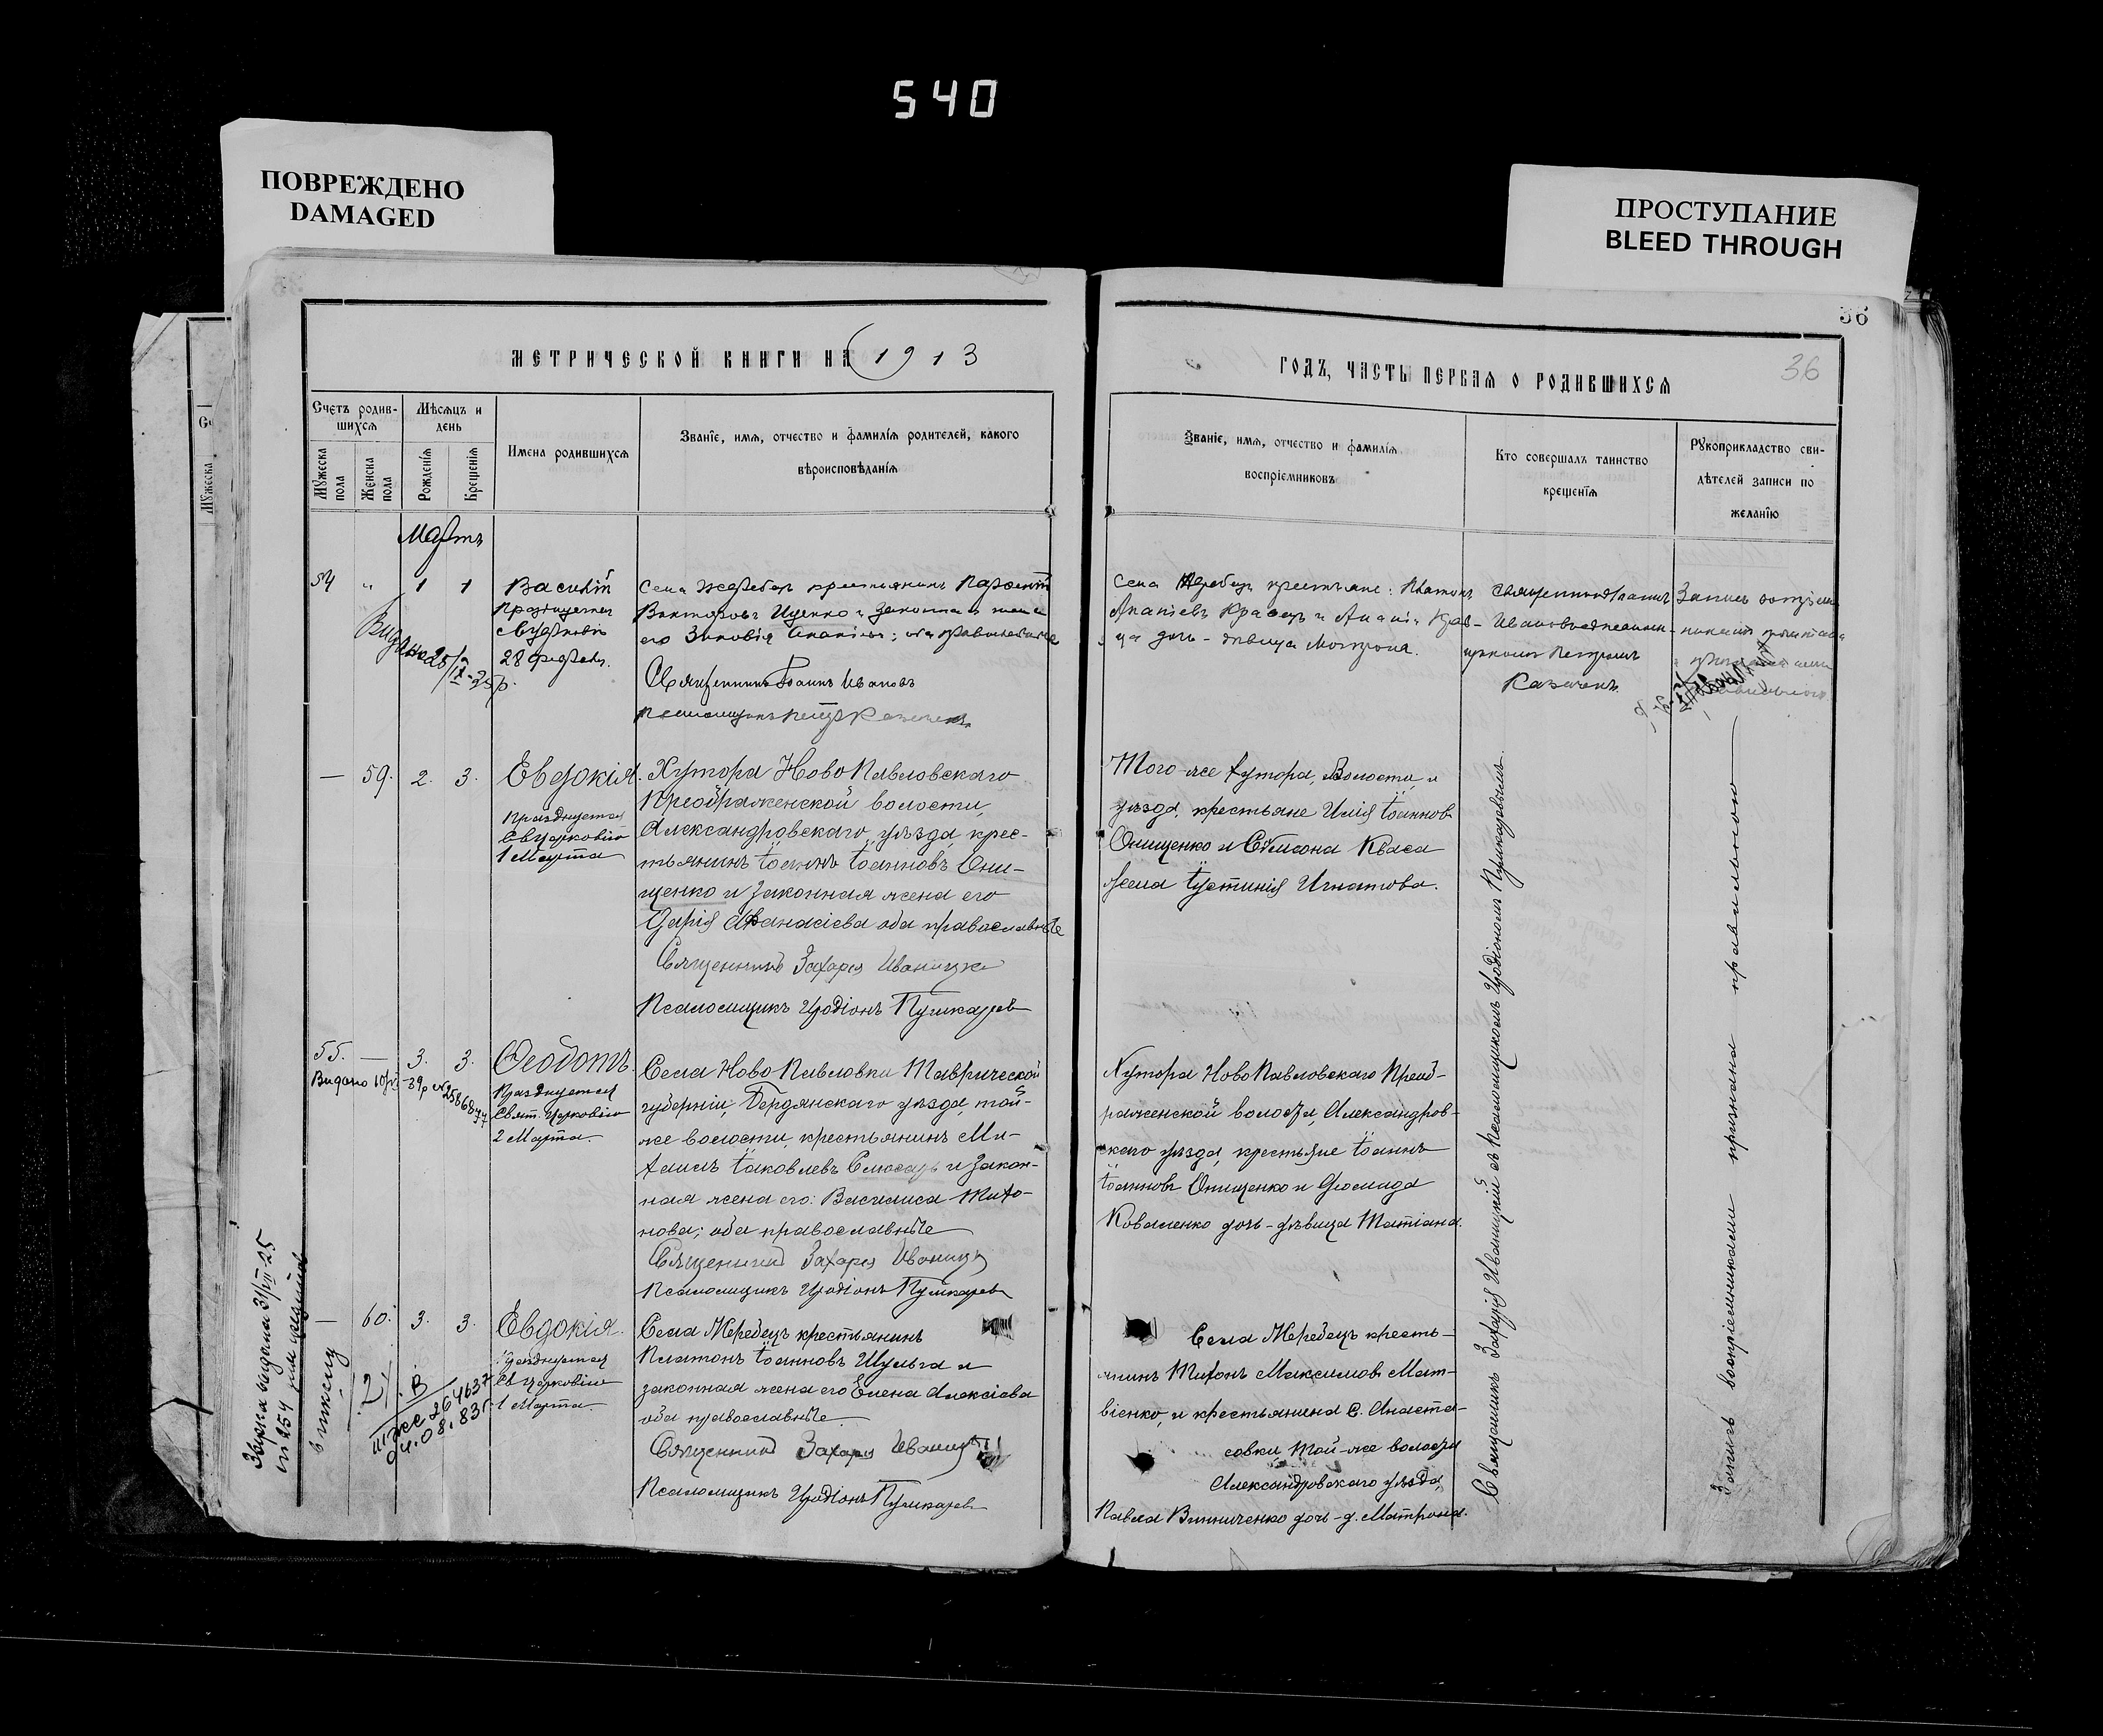 540
ПОВРЕЖДЕНО
DAMAGED
ПРОСТУПАНИЕ
BLEED THROUGH
36
36
МЕТРИЧЕСКОЙ КНИГИ НА 1913
ГОДЪ, ЧАСТЬ ПЕРВАЯ О РОДИВШИХСЯ
Счетъ родив-
шихся
Мѣсяцъ и
день
Мужеска
пола
Женска
пола
Рожденія
Крещенія
Имена родившихся
Званіе, имя, отчество и фамилія родителей, какого
вѣроисповѣданія
Званіе, имя, отчество и фамилія
воспріемниковъ
Кто совершалъ таинство
крещенія
Рукоприкладство сви-
дѣтелей записи по
желанію
Мартъ
54 " 1 1
Василій
Празднуется
Св. Церковію
28 февр.
Села Жеребца крестьянинъ
Викторовъ Иценко и законная жена
его Зиновія; оба православные
Священникъ Іоаннъ Ивановъ
Псаломщикъ Петръ Казачекъ
Села Жеребца крестьяне: Платонъ
Ананіевъ Кравецъ и Ананія Крав-
ца дочь - дѣвица Матрона.
Священникъ Іоаннъ
Ивановъ съ псалом-
щикомъ Петромъ
Казачекъ.
Запись воспріем-
никами
Видано 25/IX-25р.
— 59. 2. 3.
Евдокія.
Празднуется
Св. Церковію
1 Марта
Хутора Ново Павловскаго
Преображенской волости,
Александровскаго уѣзда, крес-
тьянинъ Іоаннъ Іоанновъ Они-
щенко и законная жена его
Дарія Афанасіева оба православные
Священникъ Захарія Иваницкій
Псаломщикъ Иродіонъ Пушкаревъ
Того-же хутора, волости и
уѣзда, крестьяне Илія Іоаннов
Онищенко и Симеона Кваса
жена Іустинія Игнатова.
55. — 3. 3.
Видано 10/VI-39р. №2586877
Ѳеодотъ.
Празднуется
Свят. Церковію
2 Марта.
Села Ново Павловки Таврической
губерніи, Бердянскаго уѣзда, той-
же волости, крестьянинъ Ми-
хаилъ Іаковлевъ Слюсарь и закон-
ная жена его: Василиса Тихо-
нова; оба православные
Священникъ Захарія Иваницкій
Псаломщикъ Иродіонъ Пушкаревъ
Хутора Ново Павловскаго Преоб-
раженской волости, Александров-
скаго уѣзда, крестьяне Іоаннъ
Іоанновъ Онищенко и Діомида
Коваленко дочь-дѣвица Татіана.
— 60. 3. 3.
Евдокія.
Празднуется
Св. Церковію
1 Марта.
Села Жеребецъ крестьянинъ
Платонъ Іоанновъ Шульга и
законная жена его Елена Алексіева
оба православные.
Священникъ Захарія Иваницкій
Псаломщикъ Иродіонъ Пушкаревъ
Села Жеребецъ кресть-
янинъ Тихонъ Максимов Мат-
віенко, и крестьянина с. Анаста-
совки, той-же волости
Александровскаго уѣзда,
Павла Винниченко дочь-д. Матрона.
264637
04.08.83г.
Священникъ Захарія Иваницкій съ Псаломщикомъ Иродіономъ Пушкаревымъ.
Запись воспріемниками признана правильною